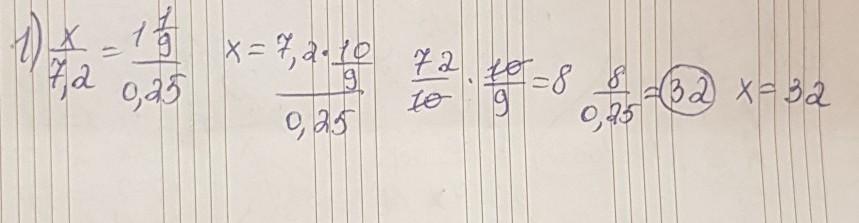 1) x/7,2 = 1 1/9 / 0,25 x = 7,2 · 10/9 / 0,25 72/10 · 10/9 = 8 8/0,25 = 32 x = 32